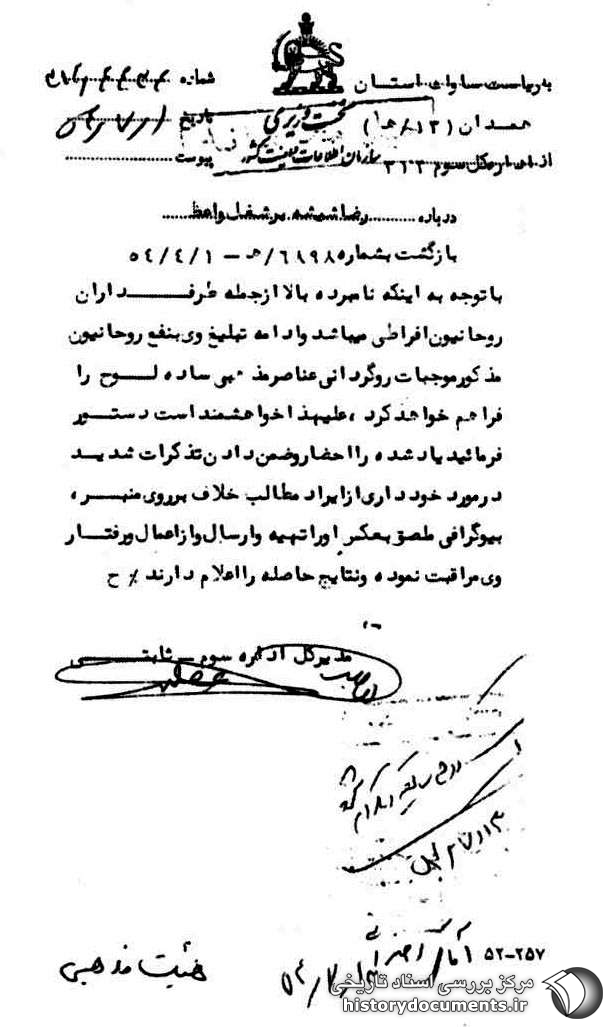 به ریاست ساواك استان
شماره
همدان (۱۳/هـ)
نخست وزیری
تاریخ
از اداره كل سوم ۳۱۲
سازمان اطلاعات و امنیت كشور
پیوست
درباره رضا شمشه بر شغل واعظ
بازگشت بشماره ۶۸۹۸/هـ - ۵۴/۴/۱
با توجه به اینكه نامبرده بالا از جمله طرفداران
روحانیون افراطی میباشد و ادامه تبلیغ وی بنفع روحانیون
مذكور موجبات روگردانی عناصر مذهبی ساده لوح را
فراهم خواهد كرد ، علیهذا خواهشمند است دستور
فرمائید یاد شده را احضار و ضمن دادن تذكرات شدید
در مورد خودداری از ایراد مطالب خلاف بر روی منبر ،
بیوگرافی ملصق بعكس او را تهیه و ارسال و از اعمال و رفتار
وی مراقبت نموده و نتایج حاصله را اعلام دارند ٪ ح
مدیر كل اداره سوم - ثابتی
۵۲-۲۵۷
هیئت مذهبی
مرکز بررسی اسناد تاریخی
historydocuments.ir